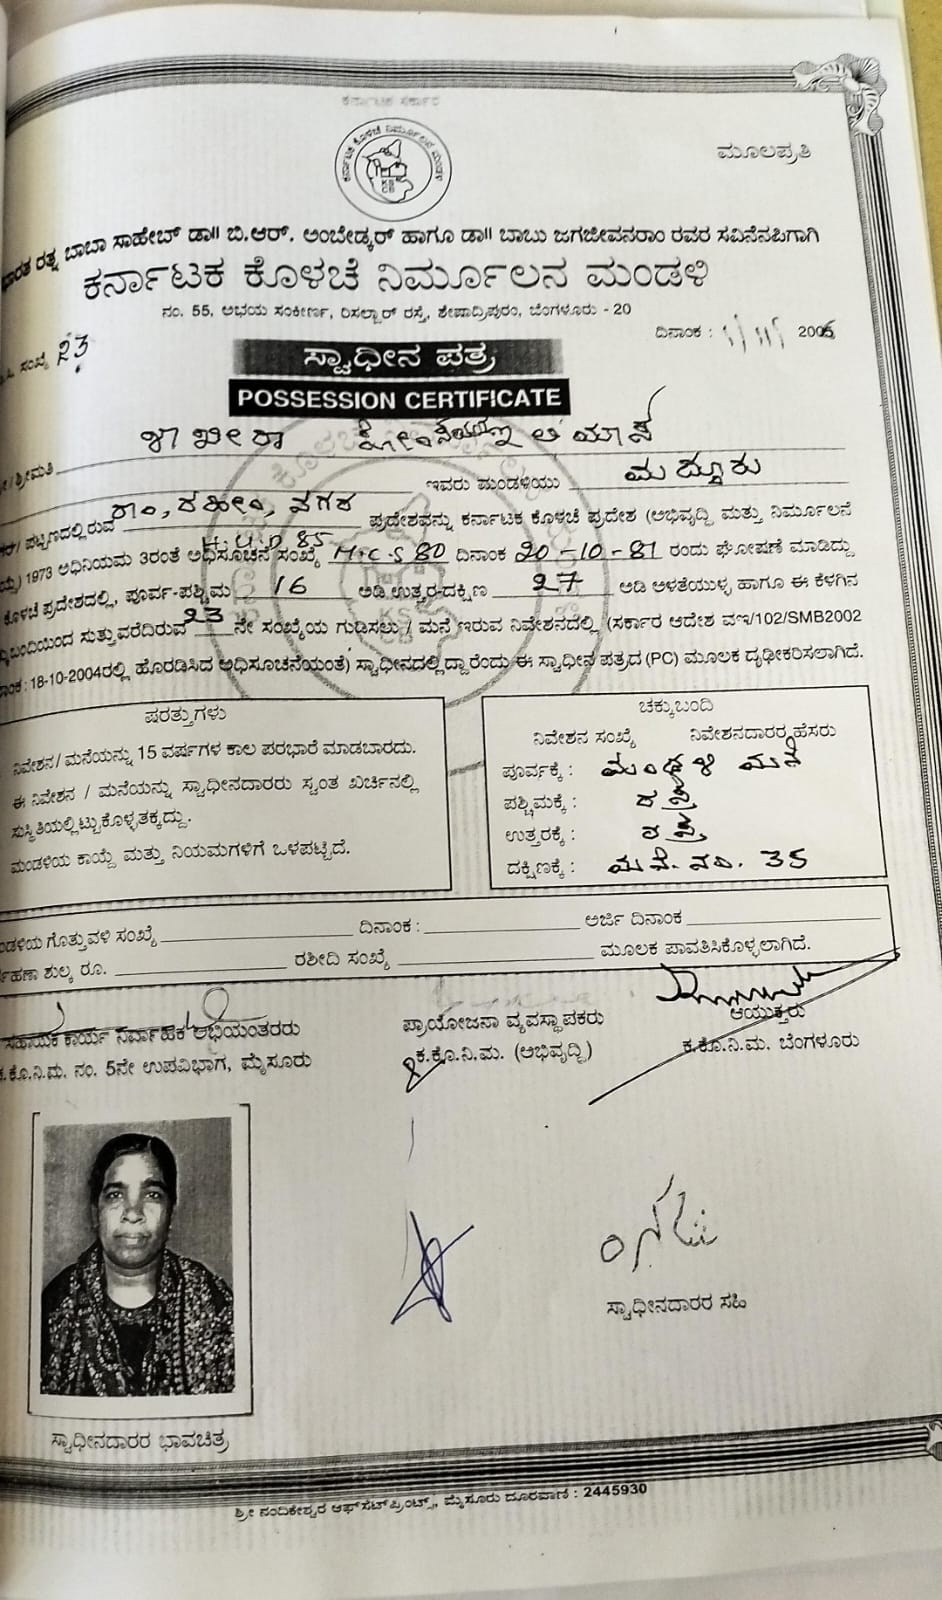 ಕರ್ನಾಟಕ ಸರ್ಕಾರ
ಕರ್ನಾಟಕ ಕೊಳಚೆ ನಿರ್ಮೂಲನ ಮಂಡಳಿ
ಮೂಲಪ್ರತಿ
ಭಾರತ ರತ್ನ ಬಾಬಾ ಸಾಹೇಬ್ ಡಾ|| ಬಿ.ಆರ್. ಅಂಬೇಡ್ಕರ್ ಹಾಗೂ ಡಾ|| ಬಾಬು ಜಗಜೀವನರಾಂ ರವರ ಸವಿನೆನಪಿಗಾಗಿ
ಕರ್ನಾಟಕ ಕೊಳಚೆ ನಿರ್ಮೂಲನ ಮಂಡಳಿ
ನಂ. 55, ಅಭಯ ಸಂಕೀರ್ಣ, ರಿಸಲ್ದಾರ್ ರಸ್ತೆ, ಶೇಷಾದ್ರಿಪುರಂ, ಬೆಂಗಳೂರು - 20
ಸಂಖ್ಯೆ
ದಿನಾಂಕ : 2005
ಸ್ವಾಧೀನ ಪತ್ರ
POSSESSION CERTIFICATE
/ಶ್ರೀಮತಿ
ಇವರು ಮಂಡಳಿಯು ಮದ್ದೂರು
ಪಟ್ಟಣದಲ್ಲಿರುವ ರಾಂ, ರಹೀಂ, ನಗರ ಪ್ರದೇಶವನ್ನು ಕರ್ನಾಟಕ ಕೊಳಚೆ ಪ್ರದೇಶ (ಅಭಿವೃದ್ಧಿ ಮತ್ತು ನಿರ್ಮೂಲನೆ
1973 ಅಧಿನಿಯಮ 3ರಂತೆ ಅಧಿಸೂಚನೆ ಸಂಖ್ಯೆ H.U.D 85 M.C.S 80 ದಿನಾಂಕ 20-10-81 ರಂದು ಘೋಷಣೆ ಮಾಡಿದ್ದು
ಕೊಳಚೆ ಪ್ರದೇಶದಲ್ಲಿ, ಪೂರ್ವ-ಪಶ್ಚಿಮ 16 ಅಡಿ ಉತ್ತರ-ದಕ್ಷಿಣ 27 ಅಡಿ ಅಳತೆಯುಳ್ಳ ಹಾಗೂ ಈ ಕೆಳಗಿನ
ಸುತ್ತುವರೆದಿರುವ 23 ನೇ ಸಂಖ್ಯೆಯ ಗುಡಿಸಲು / ಮನೆ ಇರುವ ನಿವೇಶನದಲ್ಲಿ (ಸರ್ಕಾರ ಆದೇಶ ವಇ/102/SMB2002
18-10-2004ರಲ್ಲಿ ಹೊರಡಿಸಿದ ಅಧಿಸೂಚನೆಯಂತೆ) ಸ್ವಾಧೀನದಲ್ಲಿದ್ದಾರೆಂದು ಈ ಸ್ವಾಧೀನ ಪತ್ರದ (PC) ಮೂಲಕ ದೃಢೀಕರಿಸಲಾಗಿದೆ.
ಷರತ್ತುಗಳು
ನಿವೇಶನ/ ಮನೆಯನ್ನು 15 ವರ್ಷಗಳ ಕಾಲ ಪರಭಾರೆ ಮಾಡಬಾರದು.
ಈ ನಿವೇಶನ / ಮನೆಯನ್ನು ಸ್ವಾಧೀನದಾರರು ಸ್ವಂತ ಖರ್ಚಿನಲ್ಲಿ
ಸುಸ್ಥಿತಿಯಲ್ಲಿಟ್ಟುಕೊಳ್ಳತಕ್ಕದ್ದು.
ಮಂಡಳಿಯ ಕಾಯ್ದೆ ಮತ್ತು ನಿಯಮಗಳಿಗೆ ಒಳಪಟ್ಟಿದೆ.
ಚಕ್ಕುಬಂದಿ
ನಿವೇಶನ ಸಂಖ್ಯೆ ನಿವೇಶನದಾರರ ಹೆಸರು
ಪೂರ್ವಕ್ಕೆ : ಮಂಡಳಿ ಮನೆ
ಪಶ್ಚಿಮಕ್ಕೆ : ರಸ್ತೆ
ಉತ್ತರಕ್ಕೆ : ರಸ್ತೆ
ದಕ್ಷಿಣಕ್ಕೆ : ಮನೆ. ನಂ. 35
ಗೊತ್ತುವಳಿ ಸಂಖ್ಯೆ ದಿನಾಂಕ : ಅರ್ಜಿ ದಿನಾಂಕ
ಶುಲ್ಕ ರೂ. ರಶೀದಿ ಸಂಖ್ಯೆ ಮೂಲಕ ಪಾವತಿಸಿಕೊಳ್ಳಲಾಗಿದೆ.
ಸಹಾಯಕ ಕಾರ್ಯ ನಿರ್ವಾಹಕ ಅಭಿಯಂತರರು
ಕ.ಕೊ.ನಿ.ಮ. ನಂ. 5ನೇ ಉಪವಿಭಾಗ, ಮೈಸೂರು
ಪ್ರಾಯೋಜನಾ ವ್ಯವಸ್ಥಾಪಕರು
ಕ.ಕೊ.ನಿ.ಮ. (ಅಭಿವೃದ್ಧಿ)
ಆಯುಕ್ತರು
ಕ.ಕೊ.ನಿ.ಮ. ಬೆಂಗಳೂರು
ಸ್ವಾಧೀನದಾರರ ಸಹಿ
ಸ್ವಾಧೀನದಾರರ ಭಾವಚಿತ್ರ
ಶ್ರೀ ನಂದಿಕೇಶ್ವರ ಆಫ್‌ಸೆಟ್‌ಪ್ರಿಂಟರ್ಸ್, ಮೈಸೂರು ದೂರವಾಣಿ : 2445930